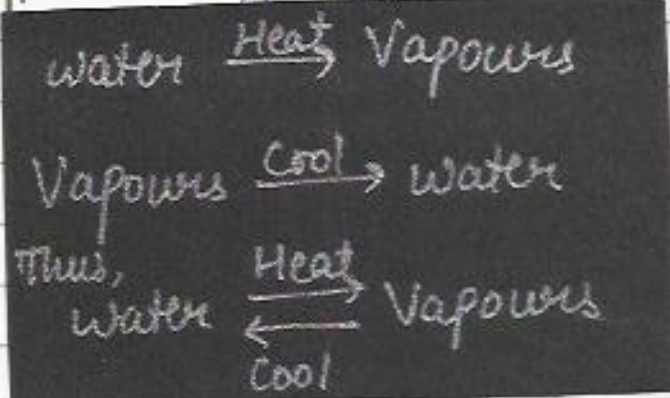 water Heat → Vapours
Vapours Cool → water
Thus,
water Heat ⇄ Vapours
Cool